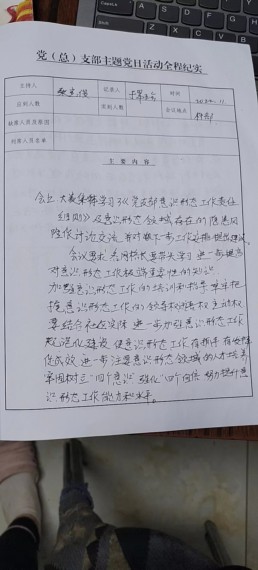 党（总）支部主题党日活动全程纪实
主持人 记录人 时间 2020.11
应到人数 实到人数 会议地点 村部
缺席人员及原因
列席人员名单
主 要 内 容
会上大家集体学习《党支部意识形态工作责任
细则》及意识形态领域存在的隐患风
险做讨论交流，并对下一步工作提出建议。
会议要求 进一步提高
对意识形态工作极端重要性的认识
加强意识形态工作的培训和指导 牢牢把
握意识形态工作的领导权 主动权
要结合社区实际 进一步加强意识形态工作
规范化建设，使意识形态工作有抓手
促成效 进一步注重意识形态领域的人才培养
牢固树立"四个意识"强化"四个自信"努力提升意
识形态工作能力和水平。